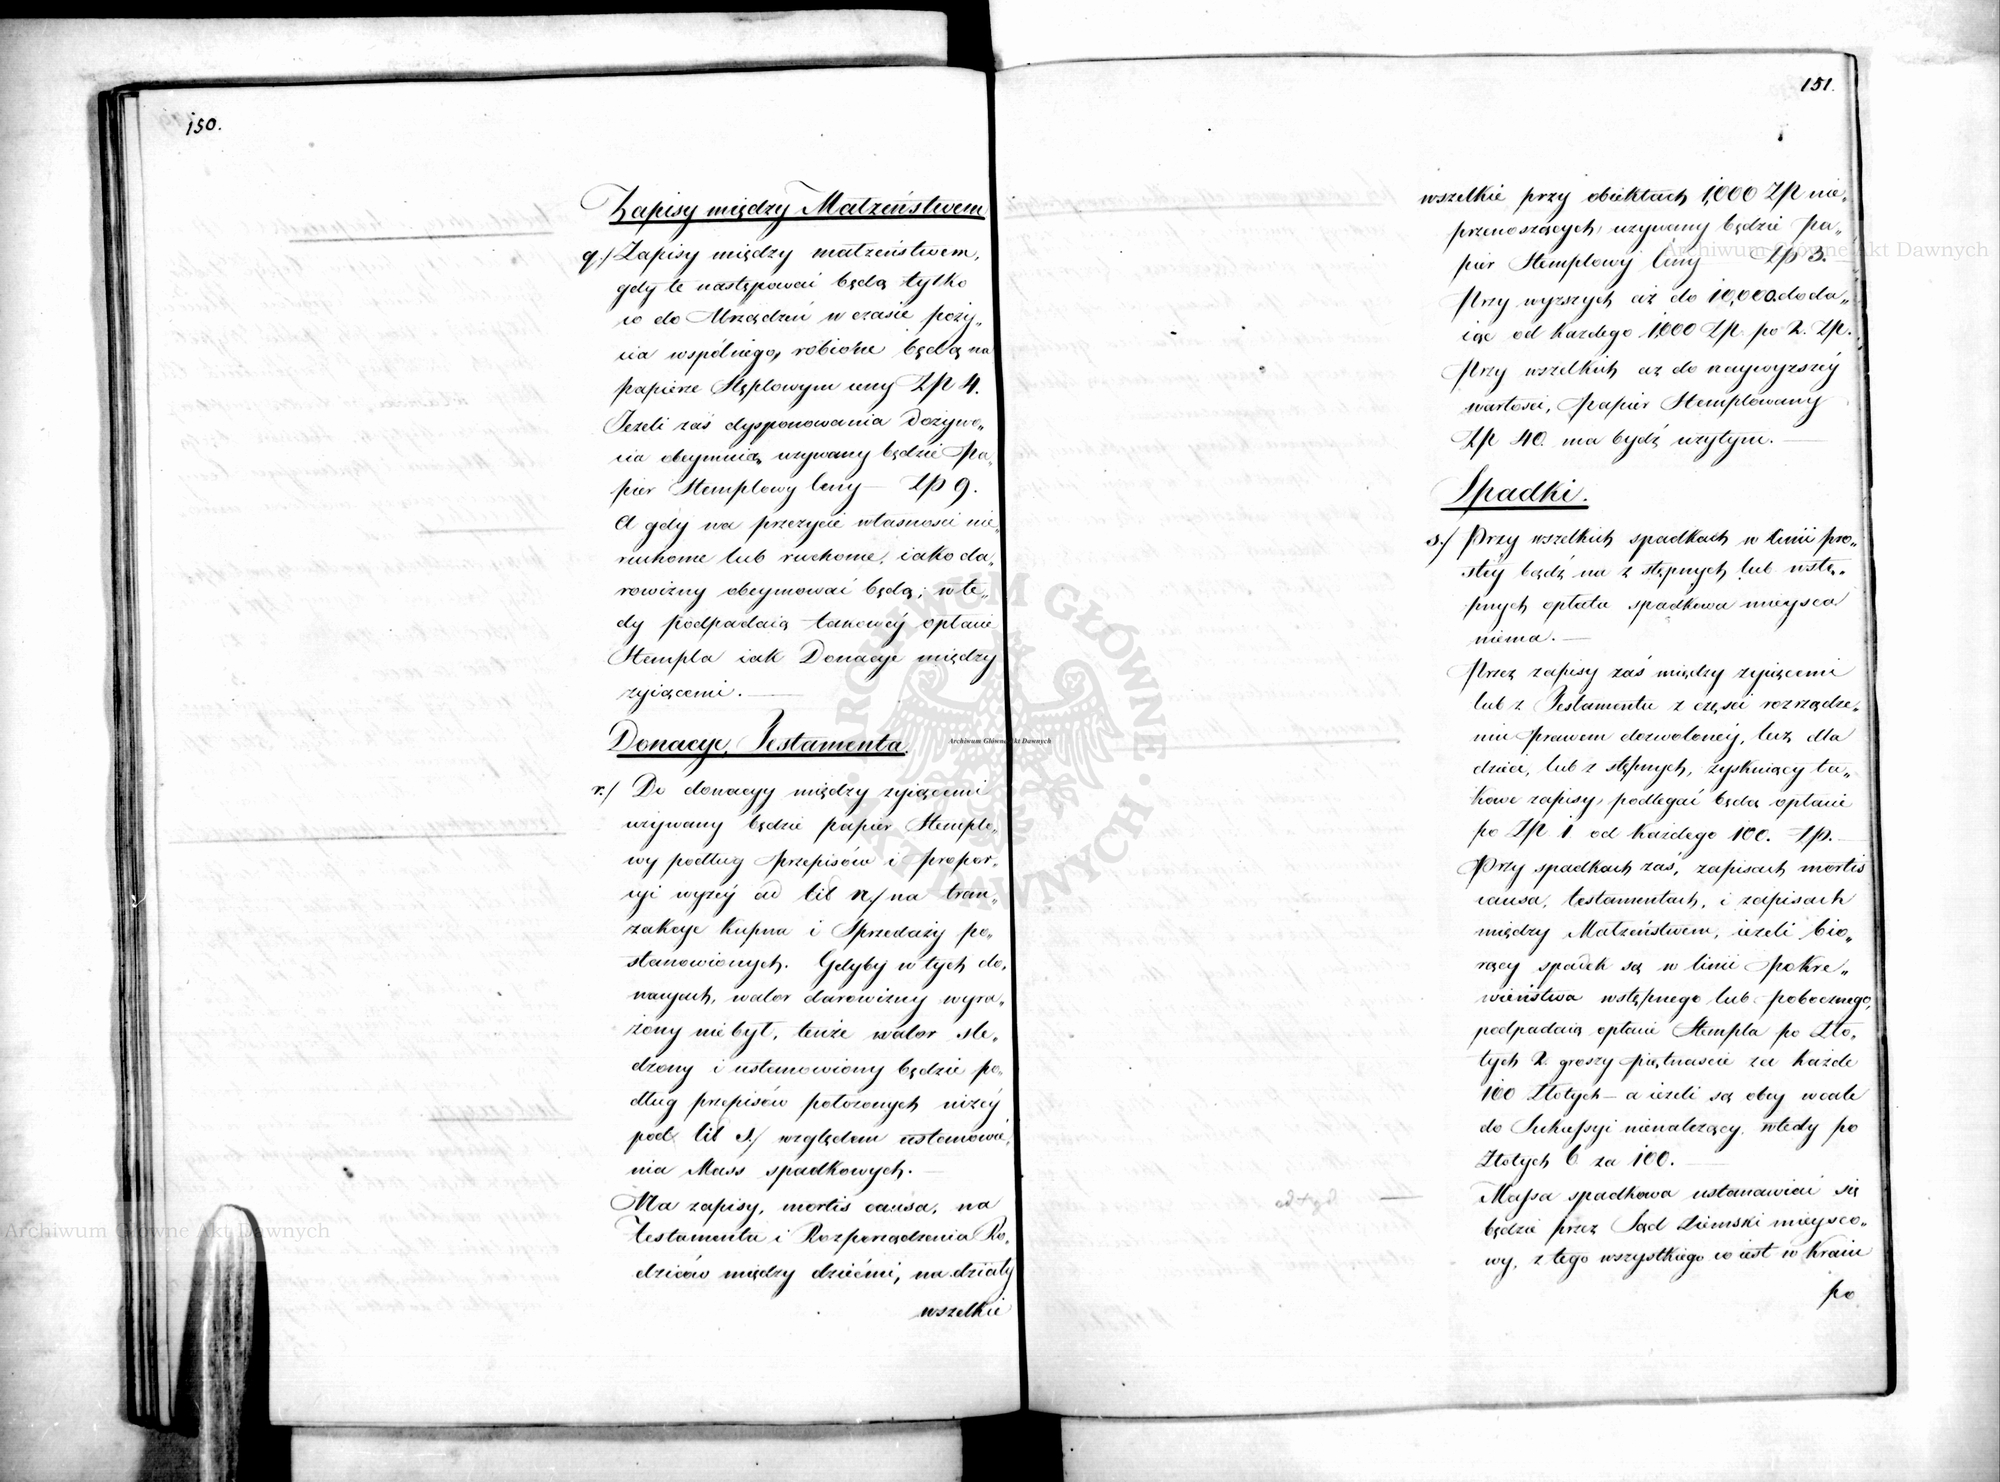 150.
Zapisy między Małzeństwem
q./ Zapisy między małzeństwem,
gdy te następować będą tylko
co do Urządzeń w czasie poży„
cia wspólnego, robione będą na
papierze Stęplowym ceny Zp 4.
Jeżeli zaś dysponowania Dożywo„
cia obeymuią, używany będzie Pa„
pier Stemplowy Ceny — Zp 9.
A gdy na przeżycie własności nie„
ruchome lub ruchome, iako da„
rowizny obeymować będą; wte„
dy podpadaią takowéy opłacie
Stempla iak Donacye między
żyiącemi. —
Donacye, Testamenta.
r./ Do donacyy między żyiącemi
używany będzie papier Stemplo„
wy podług przepisów i propor„
cyi wyżéy ad lit n./ na tran„
zakcye Kupna i Sprzedaży po„
stanowionych. Gdyby w tych do„
nacyach, walor darowizny wyra„
żony niebył, tenże walor śle„
dzony i ustanowiony będzie po„
dług przepisów położonych niżéy
pod lit S./ względem ustanowie„
nia Mass spadkowych. —
Na zapisy, mortis causa, na
Testamenta i Rozporządzenia Ro„
dziców między dziećmi, na działy
wszelkie
151.
wszelkie przy obiektach 1,000 Zp nie„
przenoszących, używany będzie pa„
pier Stemplowy Ceny Zp 3.
Przy wyższych aż do 10,000 doda„
iąc od każdego 1,000 Zp. po 2. Zp.
Przy wszelkich aż do naywyższéy
wartości, Papier Stemplowany
Zp 40. ma bydź użytym. —
Spadki.
s./ Przy wszelkich spadkach w linii pro„
stéy bądź na zstępnych lub wstę„
pnych opłata spadkowa mieysca
niema. —
Przez zapisy zaś między żyiącemi
lub z Testamentu z części rozrządze„
niu prawem dozwolonéy, tuż dla
dzieci, lub zstępnych, zyskuiący ta„
kowe zapisy, podlegać będą opłacie
po Zp 1 od każdego 100. Zp. —
Przy spadkach zaś, zapisach mortis
causa, testamentach, i zapisach
między Małzeństwem, ieżeli bio„
rący spadek są w linii Pokre„
wieństwa wstępnego lub pobocznego,
podpadaią opłacie Stempla po Zło„
tych 2. groszy piętnaście za każde
100 Złotych — a ieżeli są obcy wcale
do Sukcessyi nienależący, wtedy po
Złotych 6 za 100. —
Massa spadkowa ustanawiać się
będzie przez Sąd Ziemski mieysco„
wy, z tego wszystkiego co iest w Kraiu
po
Archiwum Główne Akt Dawnych
Archiwum Główne Akt Dawnych
Archiwum Główne Akt Dawnych
ARCHIWUM GŁÓWNE · AKT DAWNYCH ·